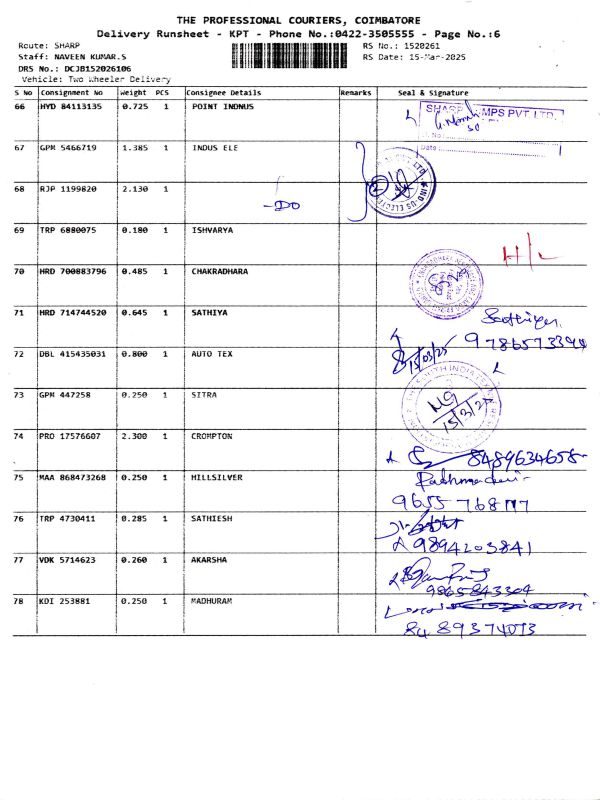 THE PROFESSIONAL COURIERS, COIMBATORE
Delivery Runsheet - KPT - Phone No.:0422-3505555 - Page No.:6
Route: SHARP RS No.: 1520261
Staff: NAVEEN KUMAR.S RS Date: 15-Mar-2025
DRS No.: DCJB152026106
Vehicle: Two Wheeler Delivery
S No Consignment No Weight PCS Consignee Details Remarks Seal & Signature
66 HYD 84113135 0.725 1 POINT INDNUS
SHARP PUMPS PVT. LTD.
67 GPM 5466719 1.385 1 INDUS ELE
Date :
68 RJP 1199820 2.130 1 -DO
IND-US ELECT
69 TRP 6880075 0.180 1 ISHVARYA
H/L
70 HRD 700883796 0.485 1 CHAKRADHARA
71 HRD 714744520 0.645 1 SATHIYA
9786573394
72 DBL 415435031 0.800 1 AUTO TEX
15/03/25
73 GPM 447258 0.250 1 SITRA
SOUTH INDIA
15/3/25
74 PRO 17576607 2.300 1 CROMPTON
8489634658
75 MAA 868473268 0.250 1 HILLSILVER
9655768117
76 TRP 4730411 0.285 1 SATHIESH
9894203841
77 VDK 5714623 0.260 1 AKARSHA
9865843304
78 KDI 253881 0.250 1 MADHURAM